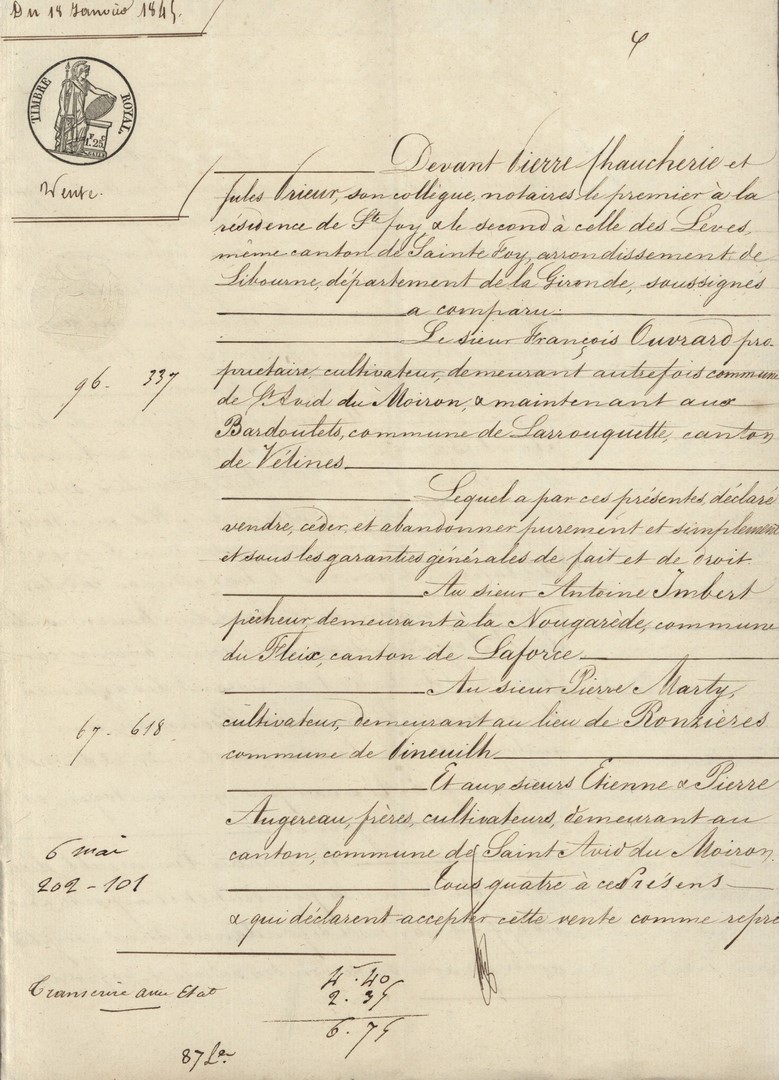 Du 18 Janvier 1845.
TIMBRE ROYAL.
1F 25C
Vente.
Devant Pierre Chaucherie et
Jules Prieur, son collègue, notaires le premier à la
résidence de Ste foy, & le second à celle des Lèves,
même canton de Sainte Foy, arrondissement de
Libourne, département de la Gironde, soussignés
a comparu:
Le sieur François Ouvrard pro-
priétaire cultivateur, demeurant autrefois commune
96. 337
de St Avid du Moiron, & maintenant aux
Bardoulets, commune de Larrouquette, canton
de Vélines
Lequel a par ces présentes, déclaré
vendre, céder et abandonner purement et simplement
et sous les garanties générales de fait et de droit
Au sieur Antoine Imbert
pêcheur, demeurant à la Nougarède, commune
du Fleix, canton de Laforce
Au sieur Pierre Marty,
cultivateur, demeurant au lieu de Ronzières
67- 618
commune de Pineuilh
Et aux sieurs Etienne & Pierre
Augereau, frères, cultivateurs, demeurant au
canton, commune de Saint Avid du Moiron,
6 mai
202-101
Tous quatre à ces Présens
& qui déclarent accepter cette vente comme repré
Transcrire avec Etat
4. 40
2. 35
6. 75